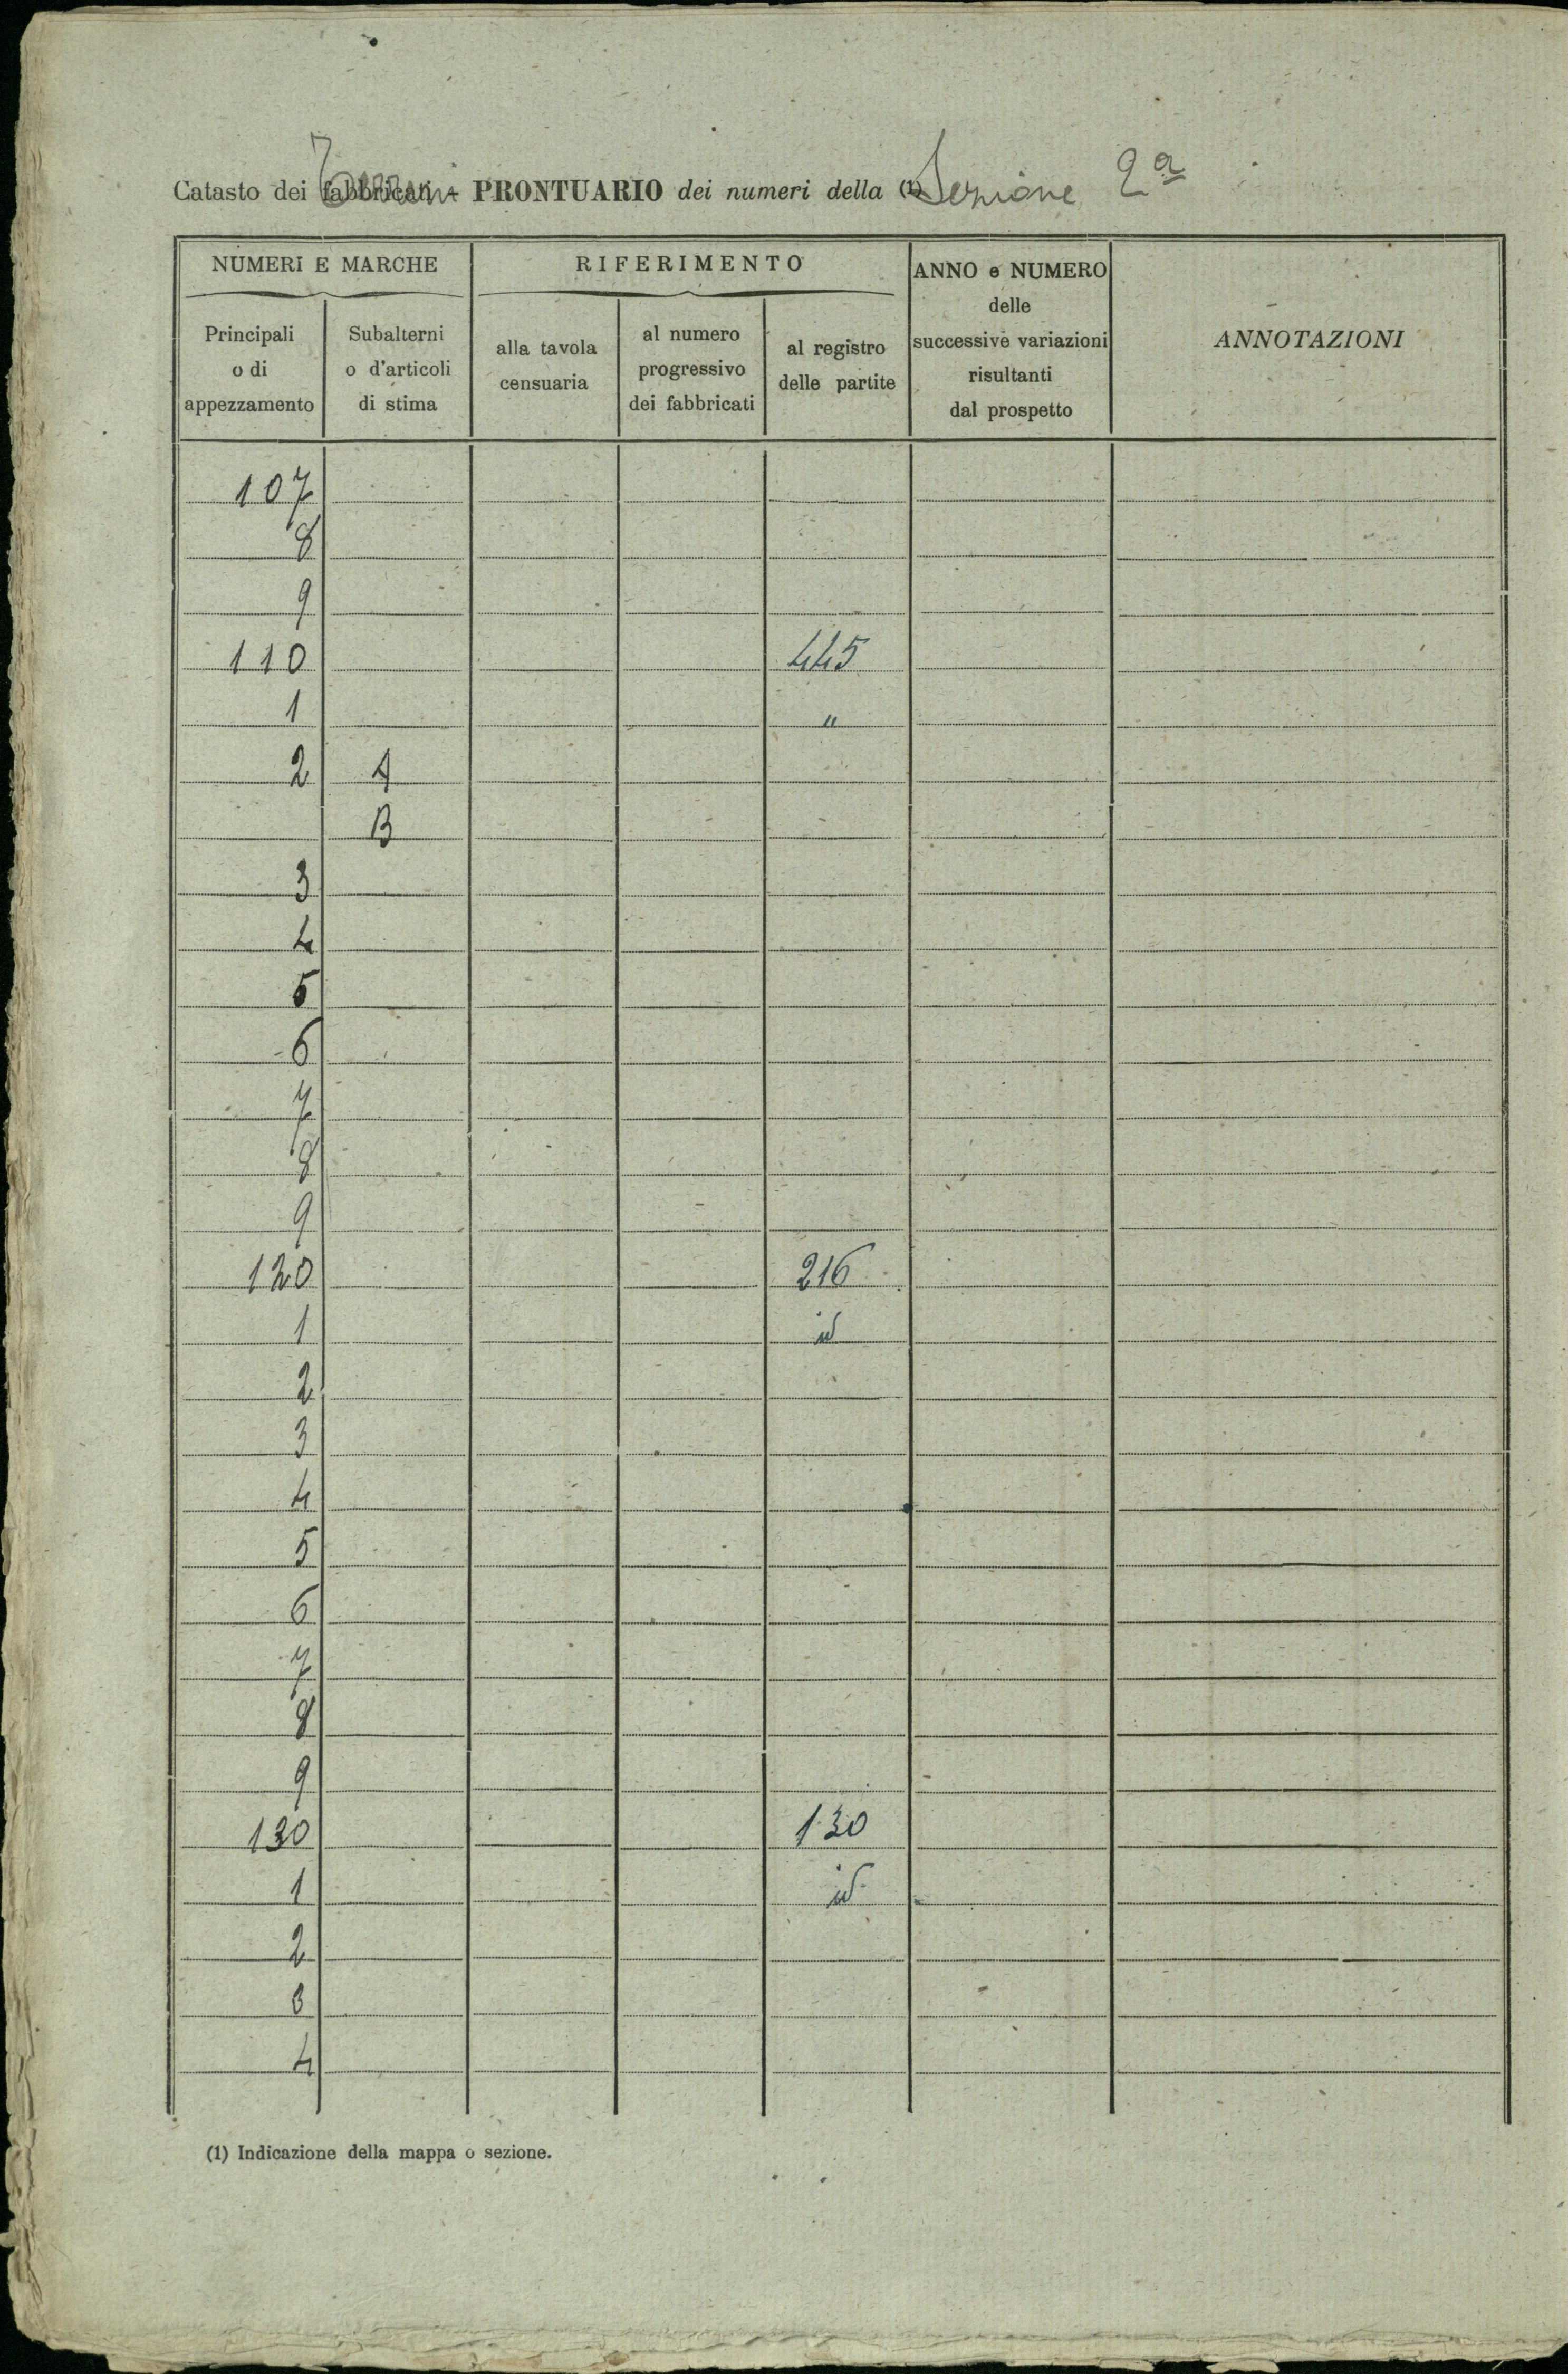 Catasto dei fabbricati - PRONTUARIO dei numeri della (1) Sezione 2ª
Terreni
NUMERI E MARCHE
RIFERIMENTO
ANNO e NUMERO delle successive variazioni risultanti dal prospetto
ANNOTAZIONI
Principali o di appezzamento
Subalterni o d'articoli di stima
alla tavola censuaria
al numero progressivo dei fabbricati
al registro delle partite
107
8
9
110 445
1 "
2 A
B
3
4
5
6
7
8
9
120 216
1 id
2
3
4
5
6
7
8
9
130 130
1 id
2
3
4
(1) Indicazione della mappa o sezione.